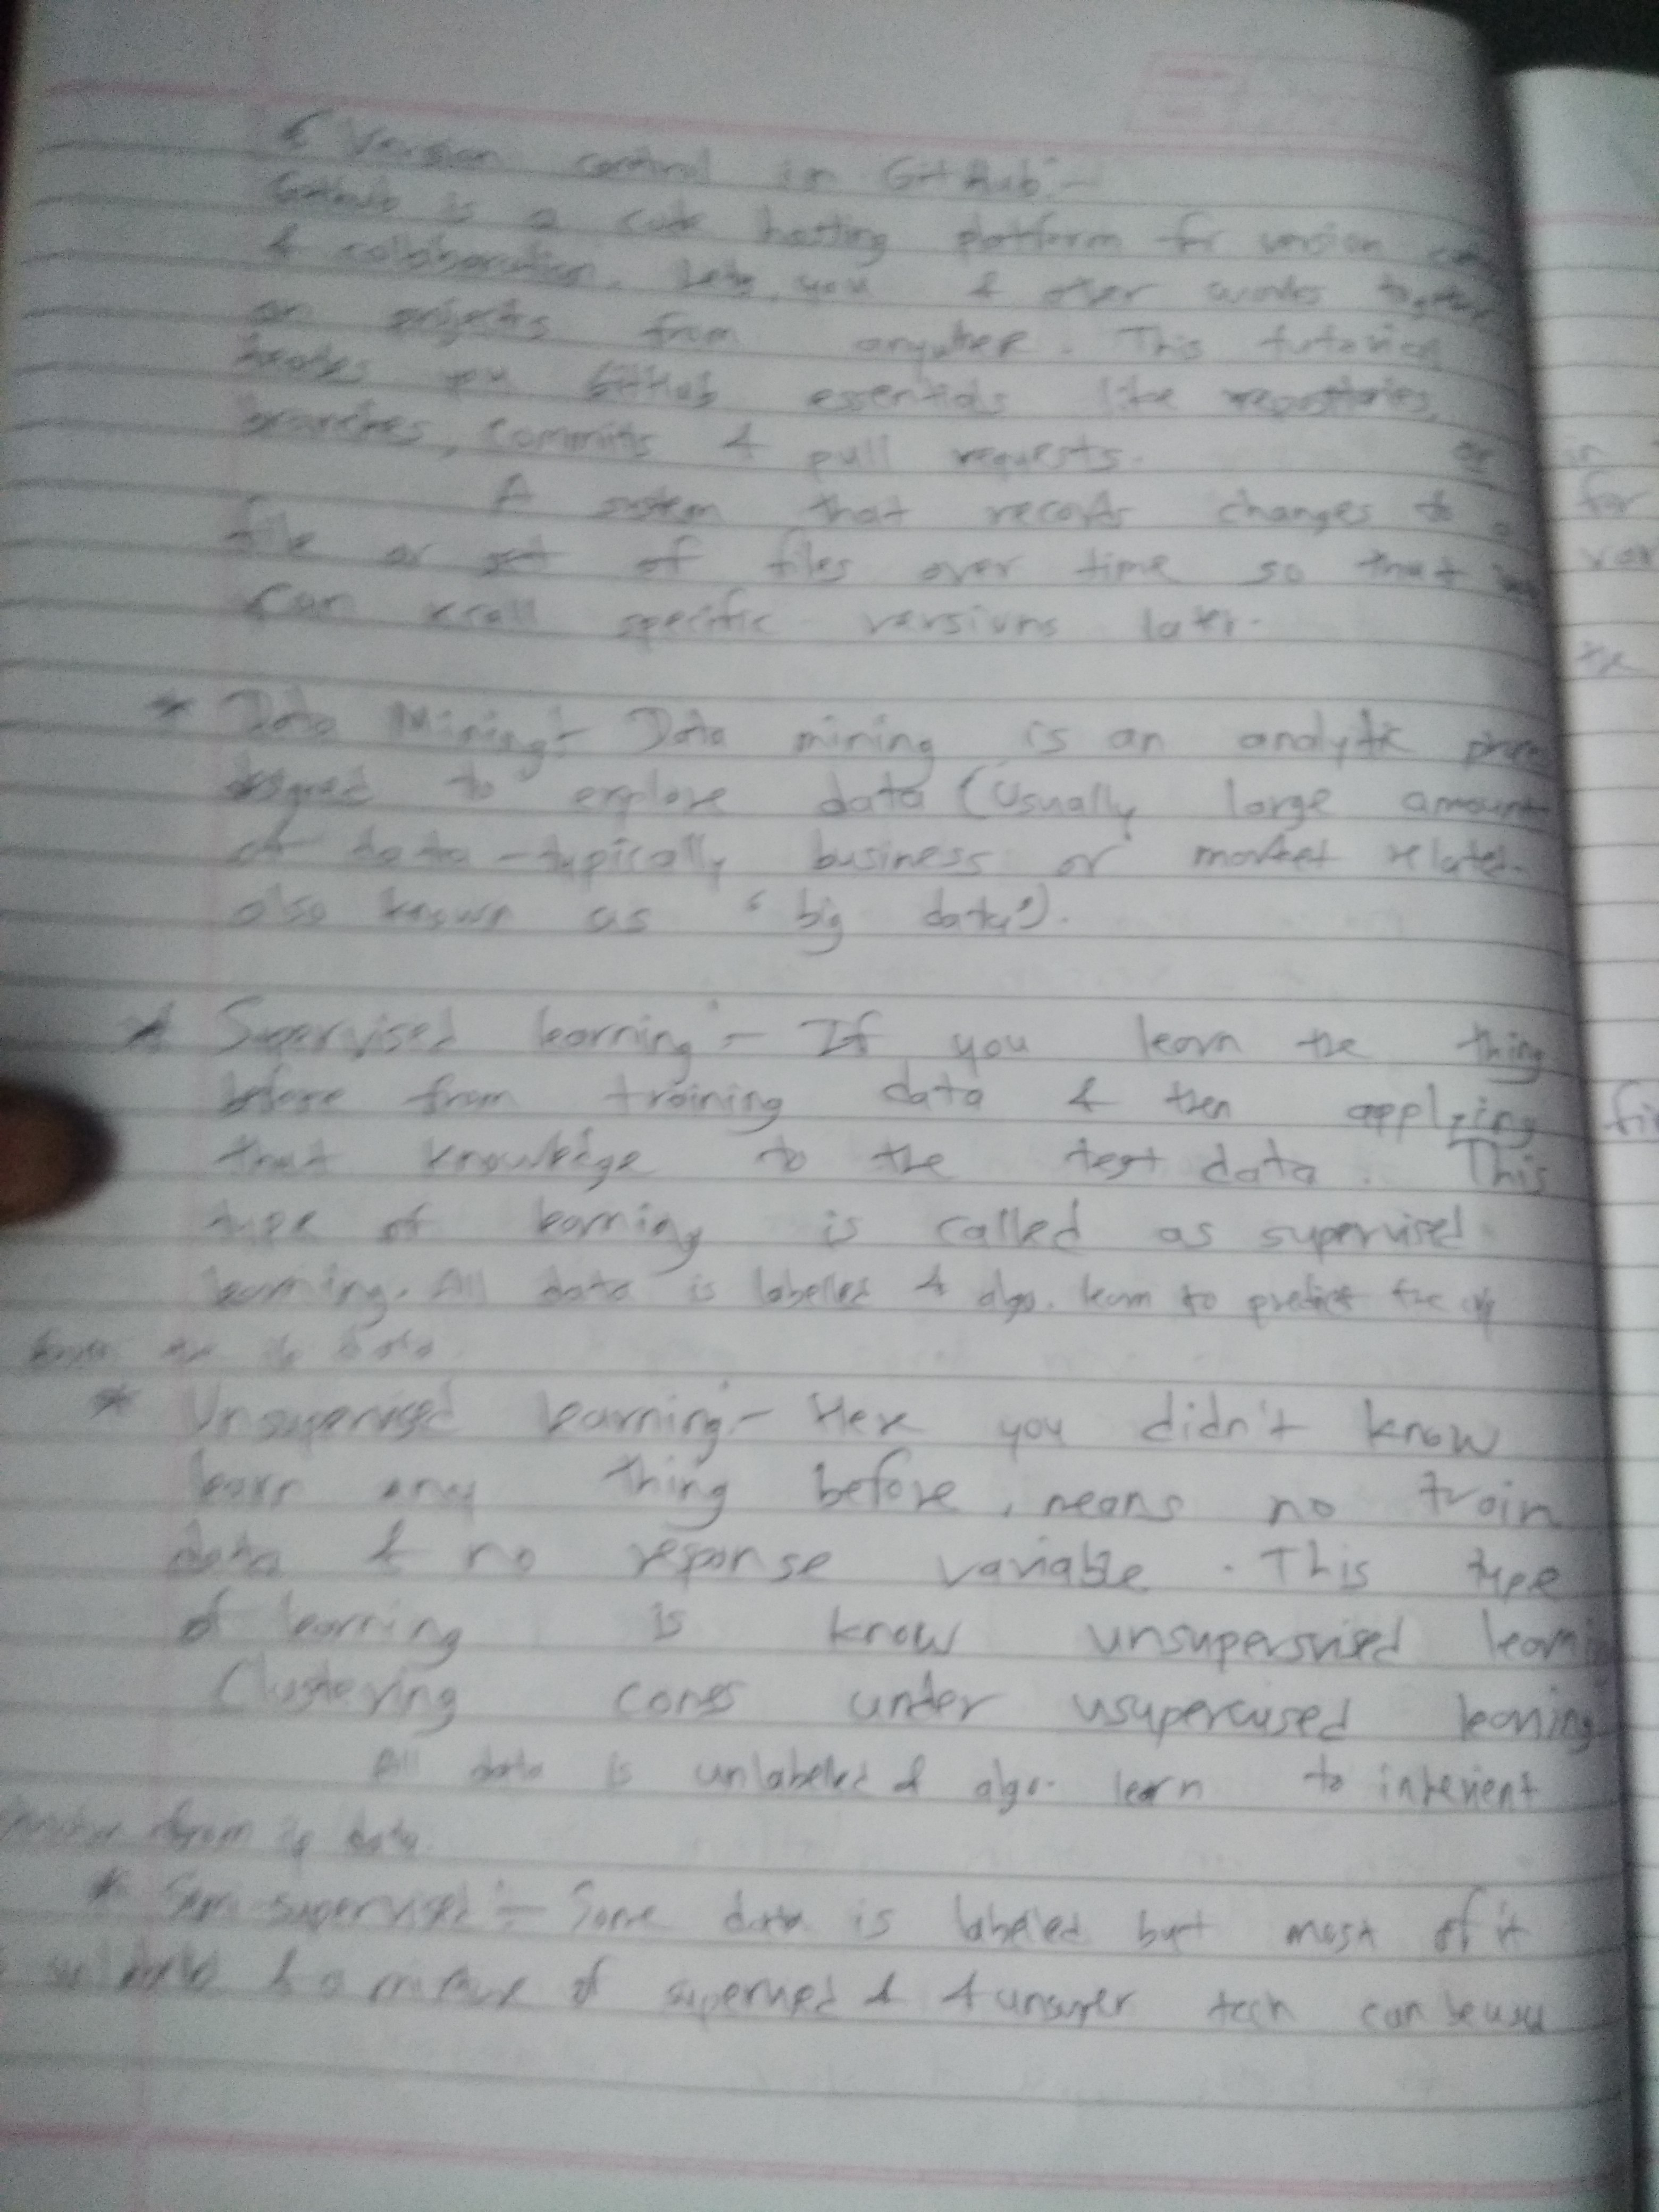 Version control in GitHub:-
Github is a code hosting platform for version
& collaboration. Lets you & other works together
on projects from anywhere. This tutorial
teaches you GitHub essentials like repositories,
branches, commits & pull requests. or
A system that records changes to a
file or set of files over time so that
can recall specific versions later.
* Data Mining:- Data mining is an analytic
designed to explore data (Usually large amount
of data - typically business or market related-
also known as "big data").
* Supervised learning:- If you learn the thing
before from training data & then applying
that knowledge to the test data. This
type of learning is called as supervised
learning. All data is labelled & algo. learn to predict the o/p
from the i/p data
* Unsupervised learning:- Here you didn't know
learn any thing before, means no train
data & no reponse variable. This type
of learning is know unsupersvised learni
Clustering comes under usupervised learning
All data is unlabeled & algo. learn to inherient
from i/p data.
* Semi supervised:- Some data is labeled but most of it
& a mixture of supervised & & unsuper tech can be used
in
for
the